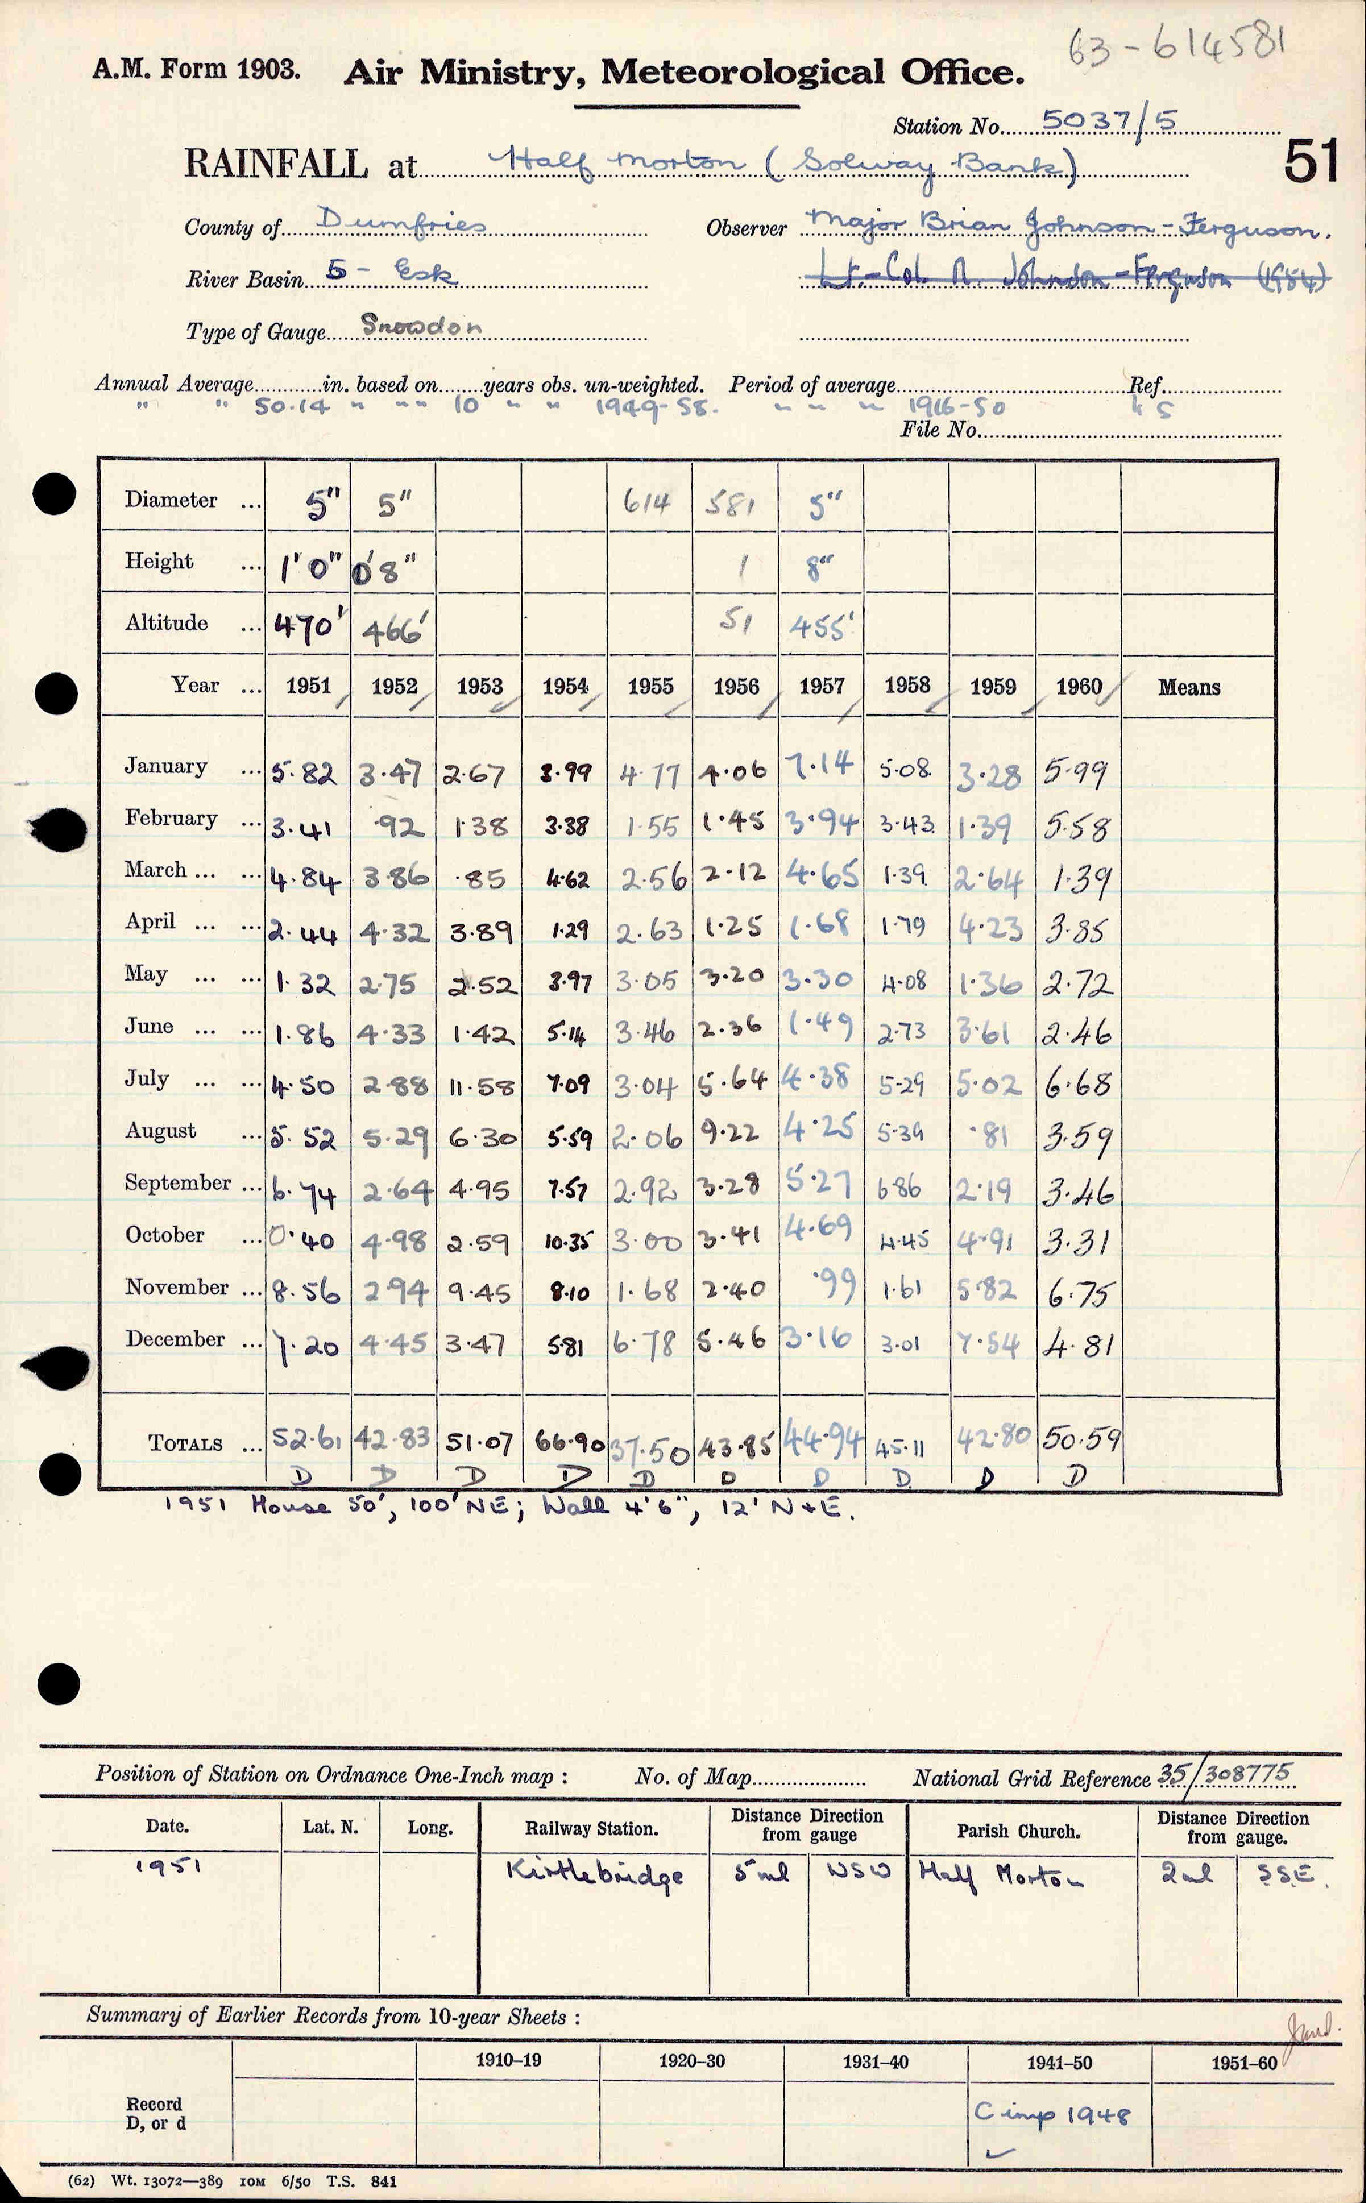 63-614581
A.M. Form 1903. Air Ministry, Meteorological Office.
Station No. 5037/5
RAINFALL at Half Morton (Solway Bank) 51
County of Dumfries Observer Major Brian Johnson-Ferguson.
River Basin 5 - Esk Lt.-Col. A. Johnson-Ferguson (1954)
Type of Gauge Snowdon
Annual Average in. based on years obs. un-weighted. Period of average Ref.
" " 50.14 " " " 10 " " 1949-58. " " " 1916-50 " 5
File No.
Diameter ... 5" 5" 614 581 5"
Height ... 1'0" 0'8" 1 8"
Altitude ... 470' 466' 51 455'
Year ... 1951 1952 1953 1954 1955 1956 1957 1958 1959 1960 Means
January ... 5.82 3.47 2.67 3.99 4.77 4.06 7.14 5.08 3.28 5.99
February ... 3.41 .92 1.38 3.38 1.55 1.45 3.94 3.43 1.39 5.58
March ... ... 4.84 3.86 .85 4.62 2.56 2.12 4.65 1.39 2.64 1.39
April ... ... 2.44 4.32 3.89 1.29 2.63 1.25 1.68 1.79 4.23 3.85
May ... ... 1.32 2.75 2.52 3.97 3.05 3.20 3.30 4.08 1.36 2.72
June ... ... 1.86 4.33 1.42 5.14 3.46 2.36 1.49 2.73 3.61 2.46
July ... ... 4.50 2.88 11.58 7.09 3.04 5.64 4.38 5.29 5.02 6.68
August ... 5.52 5.29 6.30 5.59 2.06 9.22 4.25 5.39 .81 3.59
September ... 6.74 2.64 4.95 7.57 2.92 3.28 5.27 6.86 2.19 3.46
October ... 0.40 4.98 2.59 10.35 3.00 3.41 4.69 4.45 4.91 3.31
November ... 8.56 2.94 9.45 8.10 1.68 2.40 .99 1.61 5.82 6.75
December ... 7.20 4.45 3.47 5.81 6.78 5.46 3.16 3.01 7.54 4.81
TOTALS ... 52.61 42.83 51.07 66.90 37.50 43.85 44.94 45.11 42.80 50.59
D D D D D D D D D D
1951 House 50', 100' NE; Wall 4'6", 12' N & E.
Position of Station on Ordnance One-Inch map : No. of Map National Grid Reference 35/308775
Date. Lat. N. Long. Railway Station. Distance Direction from gauge Parish Church. Distance Direction from gauge.
1951 Kirtlebridge 5 ml WSW Half Morton 2 ml SSE.
Summary of Earlier Records from 10-year Sheets :
1910–19 1920–30 1931–40 1941–50 1951–60
Record
D, or d C inp 1948
(62) Wt. 13072—389 10M 6/50 T.S. 841